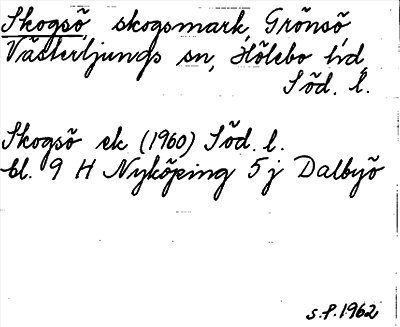 Skogsö, skogsmark, Grönsö,
Västerljungs sn, Hölebo hd,
Söd. l.
Skogsö ek (1960) Söd. l.
bl. 9 H Nyköping 5 j Dalbyö
s.f. 1962